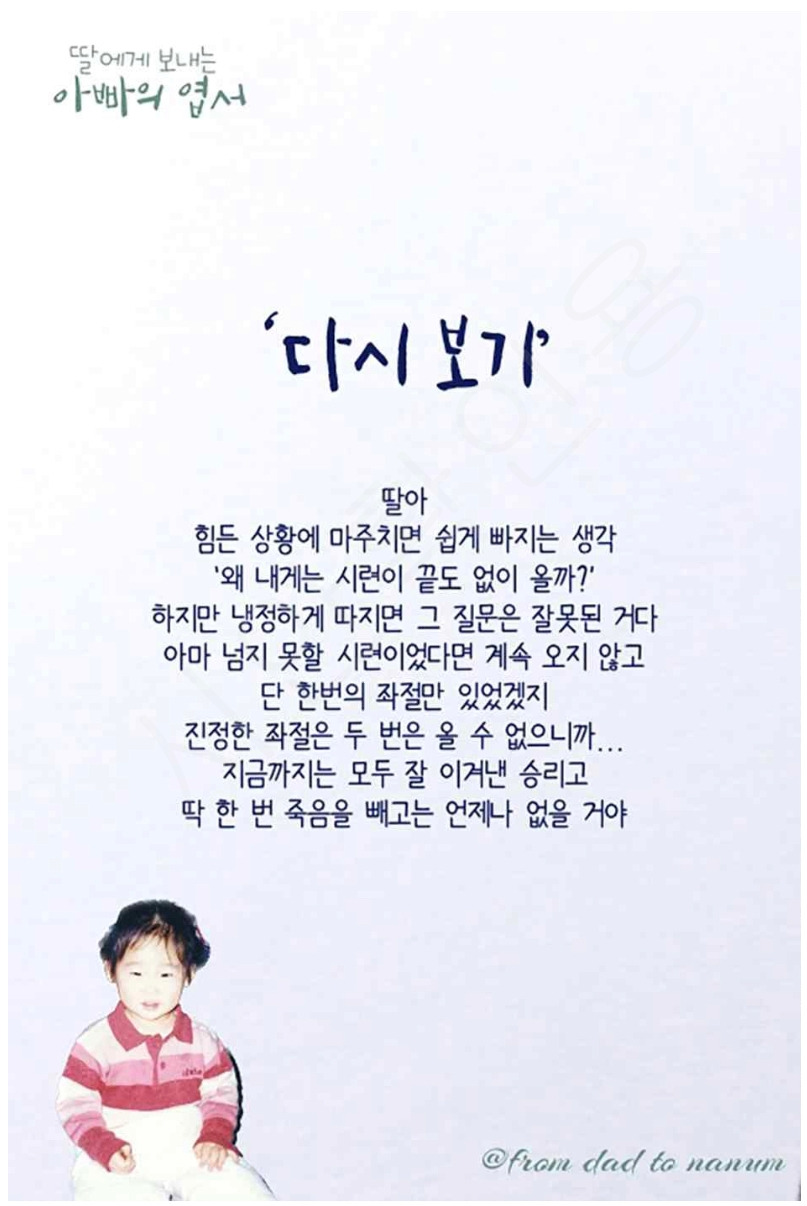 딸에게 보내는
아빠의 엽서
'다시 보기'
딸아
힘든 상황에 마주치면 쉽게 빠지는 생각
'왜 내게는 시련이 끝도 없이 올까?'
하지만 냉정하게 따지면 그 질문은 잘못된 거다
아마 넘지 못할 시련이었다면 계속 오지 않고
단 한번의 좌절만 있었겠지
진정한 좌절은 두 번은 올 수 없으니까...
지금까지는 모두 잘 이겨낸 승리고
딱 한 번 죽음을 빼고는 언제나 없을 거야
@from dad to nanum